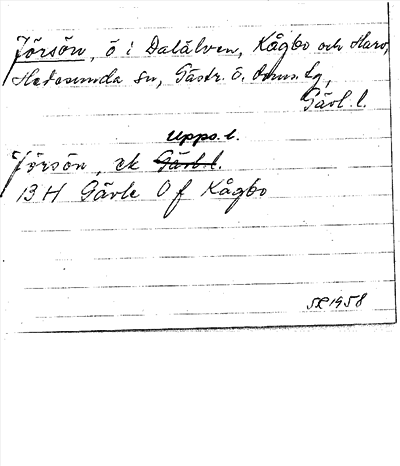 Jörsön, ö i Dalälven, Kågbo och Haro,
Hedesunda sn, Gästr. ö. doms. lg,
Gävl. l.
Upps. l.
Jörsön, ek Gävl. l.
13 H Gävle 0 f Kågbo
SR 1958